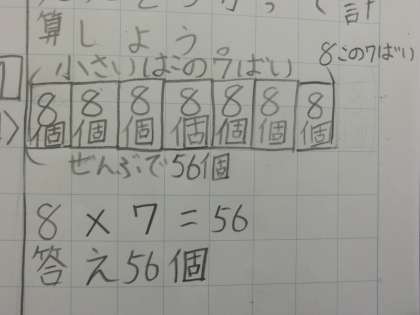 計
算しよう。
小さいはこの7ばい
8この7ばい
8個 8個 8個 8個 8個 8個 8個
ぜんぶで56個
8×7=56
答え56個